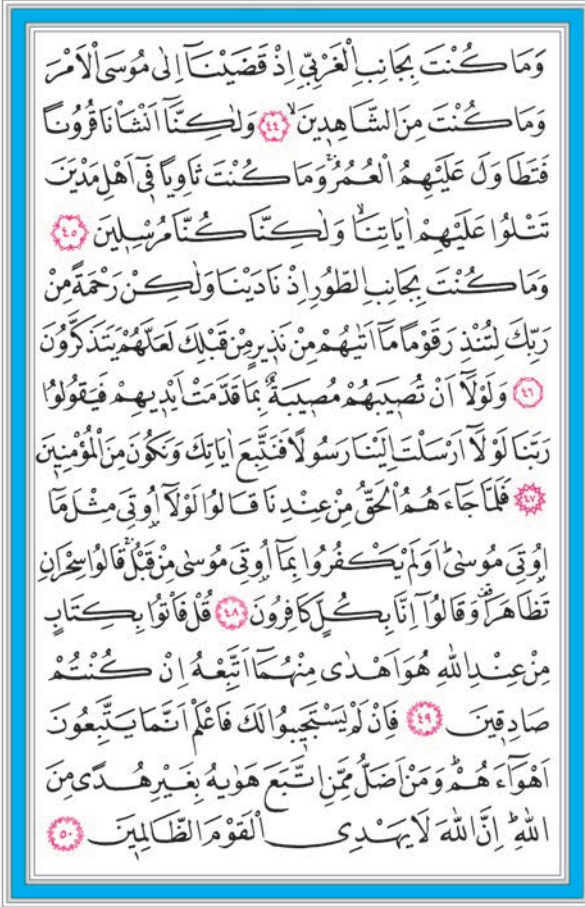 وَمَا كُنْتَ بِجَانِبِ الْغَرْبِيِّ اِذْ قَضَيْنَٓا اِلٰى مُوسَى الْاَمْرَ
وَمَا كُنْتَ مِنَ الشَّاهِدٖينَۙ ﴿٤٤﴾ وَلٰكِنَّٓا اَنْشَأْنَا قُرُوناً
فَتَطَاوَلَ عَلَيْهِمُ الْعُمُرُۚ وَمَا كُنْتَ ثَاوِياً فٖٓي اَهْلِ مَدْيَنَ
تَتْلُوا عَلَيْهِمْ اٰيَاتِنَاۙ وَلٰكِنَّا كُنَّا مُرْسِلٖينَ ﴿٤٥﴾
وَمَا كُنْتَ بِجَانِبِ الطُّورِ اِذْ نَادَيْنَا وَلٰكِنْ رَحْمَةً مِنْ
رَبِّكَ لِتُنْذِرَ قَوْماً مَٓا اَتٰيهُمْ مِنْ نَذٖيرٍ مِنْ قَبْلِكَ لَعَلَّهُمْ يَتَذَكَّرُونَ
﴿٤٦﴾ وَلَوْلَٓا اَنْ تُصٖيبَهُمْ مُصٖيبَةٌ بِمَا قَدَّمَتْ اَيْدٖيهِمْ فَيَقُولُوا
رَبَّنَا لَوْلَٓا اَرْسَلْتَ اِلَيْنَا رَسُولاً فَنَتَّبِعَ اٰيَاتِكَ وَنَكُونَ مِنَ الْمُؤْمِنٖينَ
﴿٤٧﴾ فَلَمَّا جَٓاءَهُمُ الْحَقُّ مِنْ عِنْدِنَا قَالُوا لَوْلَٓا اُو۫تِيَ مِثْلَ مَٓا
اُو۫تِيَ مُوسٰىۜ اَوَلَمْ يَكْفُرُوا بِمَٓا اُو۫تِيَ مُوسٰى مِنْ قَبْلُۚ قَالُوا سِحْرَانِ
تَظَاهَرَا۠ وَقَالُٓوا اِنَّا بِكُلٍّ كَافِرُونَ ﴿٤٨﴾ قُلْ فَأْتُوا بِكِتَابٍ
مِنْ عِنْدِ اللّٰهِ هُوَ اَهْدٰى مِنْهُمَٓا اَتَّبِعْهُ اِنْ كُنْتُمْ
صَادِقٖينَ ﴿٤٩﴾ فَاِنْ لَمْ يَسْتَجٖيبُوا لَكَ فَاعْلَمْ اَنَّمَا يَتَّبِعُونَ
اَهْوَٓاءَهُمْۜ وَمَنْ اَضَلُّ مِمَّنِ اتَّبَعَ هَوٰيهُ بِغَيْرِ هُدًى مِنَ
اللّٰهِۜ اِنَّ اللّٰهَ لَا يَهْدِي الْقَوْمَ الظَّالِمٖينَ ﴿٥٠﴾